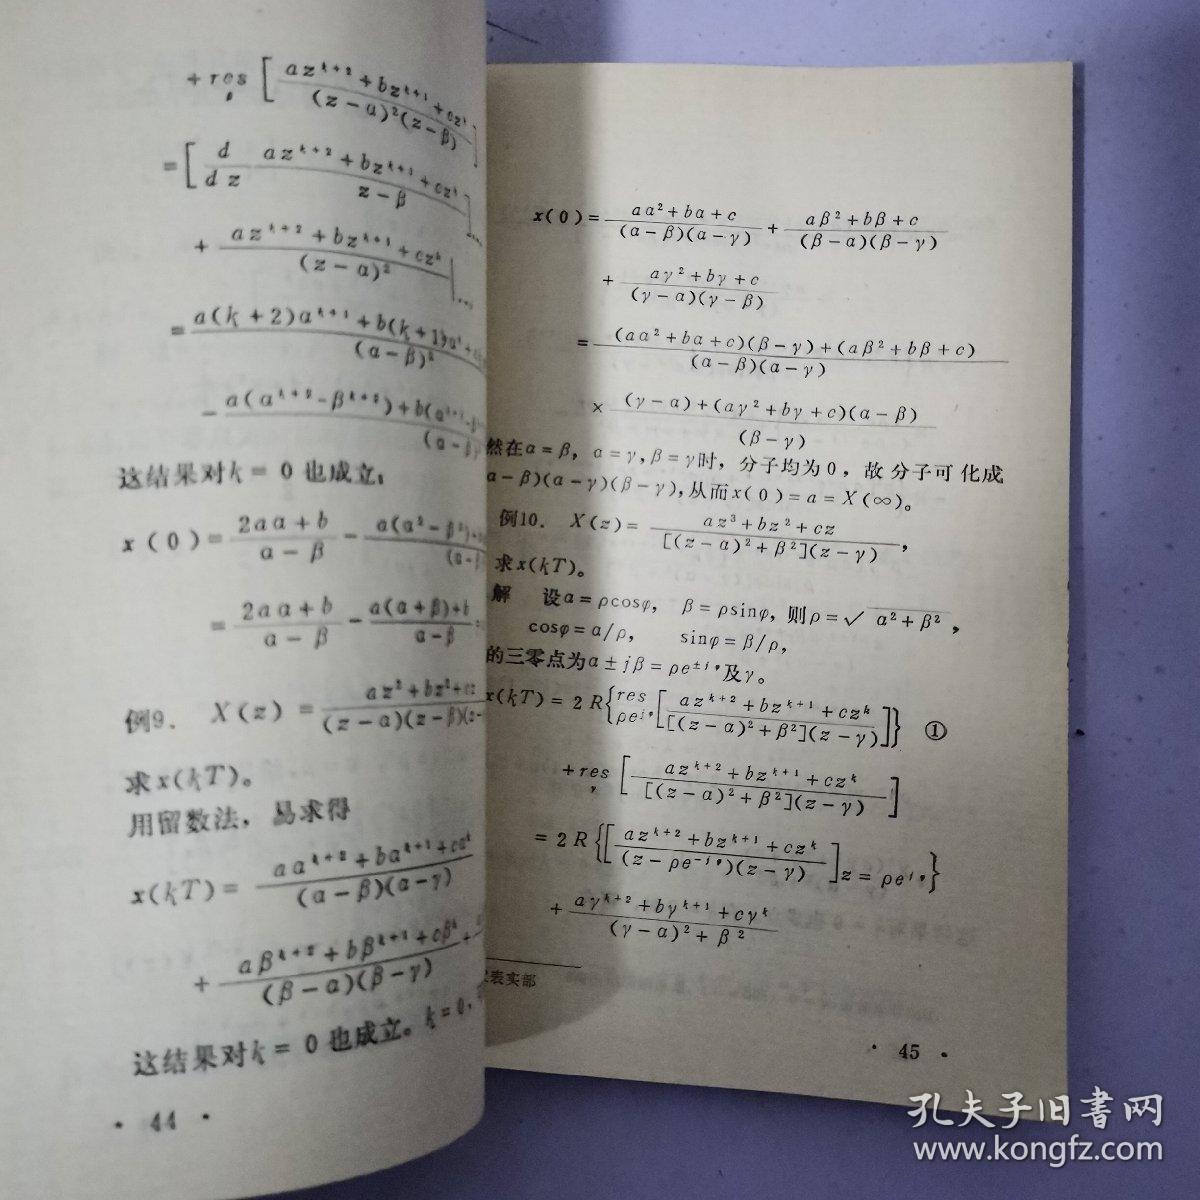 +res [ (az^{k+2}+bz^{k+1}+cz^k)/((z-α)²(z-β)) ]
=[ d/dz (az^{k+2}+bz^{k+1}+cz^k)/(z-β) ]
+ (az^{k+2}+bz^{k+1}+cz^k)/((z-α)²) |
= (a(k+2)α^{k+1}+b(k+1)α^k+
(α-β)²
- (a(α^{k+2}-β^{k+2})+b(α^{k+1}-
这结果对k=0也成立，
x(0)= (2aα+b)/(α-β) - a(α²-β²)+
= (2aα+b)/(α-β) - (a(α+β)+b)/(α-β)
例9. X(z)= (az³+bz²+cz)/((z-α)(z-β)(z-
求x(kT)。
用留数法，易求得
x(kT)= (aα^{k+2}+bα^{k+1}+cα^k)/((α-β)(α-γ))
+ (aβ^{k+2}+bβ^{k+1}+cβ^k)/((β-α)(β-γ)) +
这结果对k=0也成立。k=0,
·44·
x(0)= (aα²+bα+c)/((α-β)(α-γ)) + (aβ²+bβ+c)/((β-α)(β-γ))
+ (aγ²+bγ+c)/((γ-α)(γ-β))
= (aα²+bα+c)(β-γ)+(aβ²+bβ+c)
(α-β)(α-γ)
× (γ-α)+(aγ²+bγ+c)(α-β)
(β-γ)
然在α=β，α=γ,β=γ时，分子均为0，故分子可化成
α-β)(α-γ)(β-γ),从而x(0)=a=X(∞)。
例10. X(z)= (az³+bz²+cz)/([(z-α)²+β²](z-γ)),
求x(kT)。
解 设α=ρcosφ, β=ρsinφ, 则ρ=√α²+β²,
cosφ=α/ρ, sinφ=β/ρ,
的三零点为α±jβ=ρe^{±jφ}及γ。
x(kT)=2R{ res ρe^{jφ} [ (az^{k+2}+bz^{k+1}+cz^k)/([(z-α)²+β²](z-γ)) ]} ①
+res γ [ (az^{k+2}+bz^{k+1}+cz^k)/([(z-α)²+β²](z-γ)) ]
=2R{[ (az^{k+2}+bz^{k+1}+cz^k)/((z-ρe^{-jφ})(z-γ)) ]z=ρe^{jφ}}
+ (aγ^{k+2}+bγ^{k+1}+cγ^k)/((γ-α)²+β²)
表实部
·45·
孔夫子旧書网
www.kongfz.com